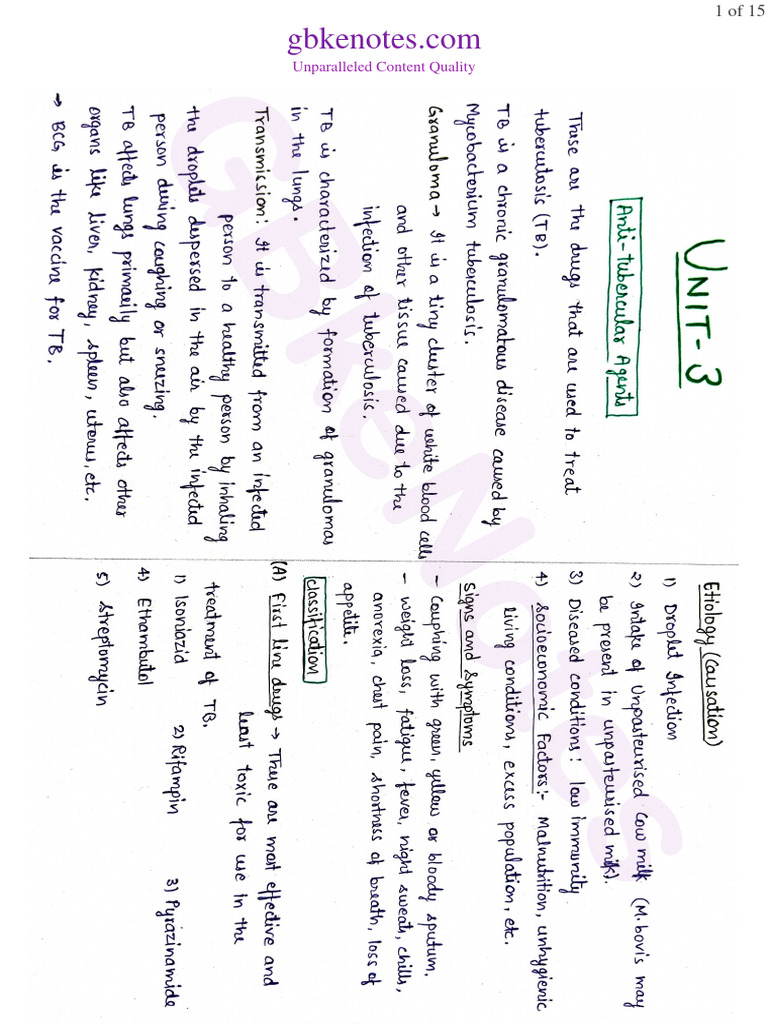 1 of 15
gbkenotes.com
Unparalleled Content Quality
UNIT-3
Anti-tubercular Agents
These are the drugs that are used to treat
tuberculosis (TB).
TB is a chronic granulomatous disease caused by
Mycobacterium tuberculosis.
Granuloma → It is a tiny cluster of white blood cells
and other tissue caused due to the
infection of tuberculosis.
TB is characterized by formation of granulomas
in the lungs.
Transmission: It is transmitted from an infected
person to a healthy person by inhaling
the droplets dispersed in the air by the infected
person during coughing or sneezing.
TB affects lungs primarily but also affects other
organs like liver, kidney, spleen, uterus, etc.
→ BCG is the vaccine for TB.
Etiology (Causation)
1) Droplet Infection
2) Intake of Unpasteurised Cow milk (M. bovis may
be present in unpasteurised milk).
3) Diseased conditions: low immunity
4) Socioeconomic Factors:- Malnutrition, unhygienic
living conditions, excess population, etc.
Signs and Symptoms
- Couphing with green, yellow or bloody sputum.
- weight loss, fatigue, fever, night sweats, chills,
anorexia, chest pain, shortness of breath, loss of
appetite.
Classification
(A) First line drugs → These are most effective and
least toxic for use in the
treatment of TB.
1) Isoniazid 2) Rifampin 3) Pyrazinamide
4) Ethambutol
5) Streptomycin
GBKeNotes